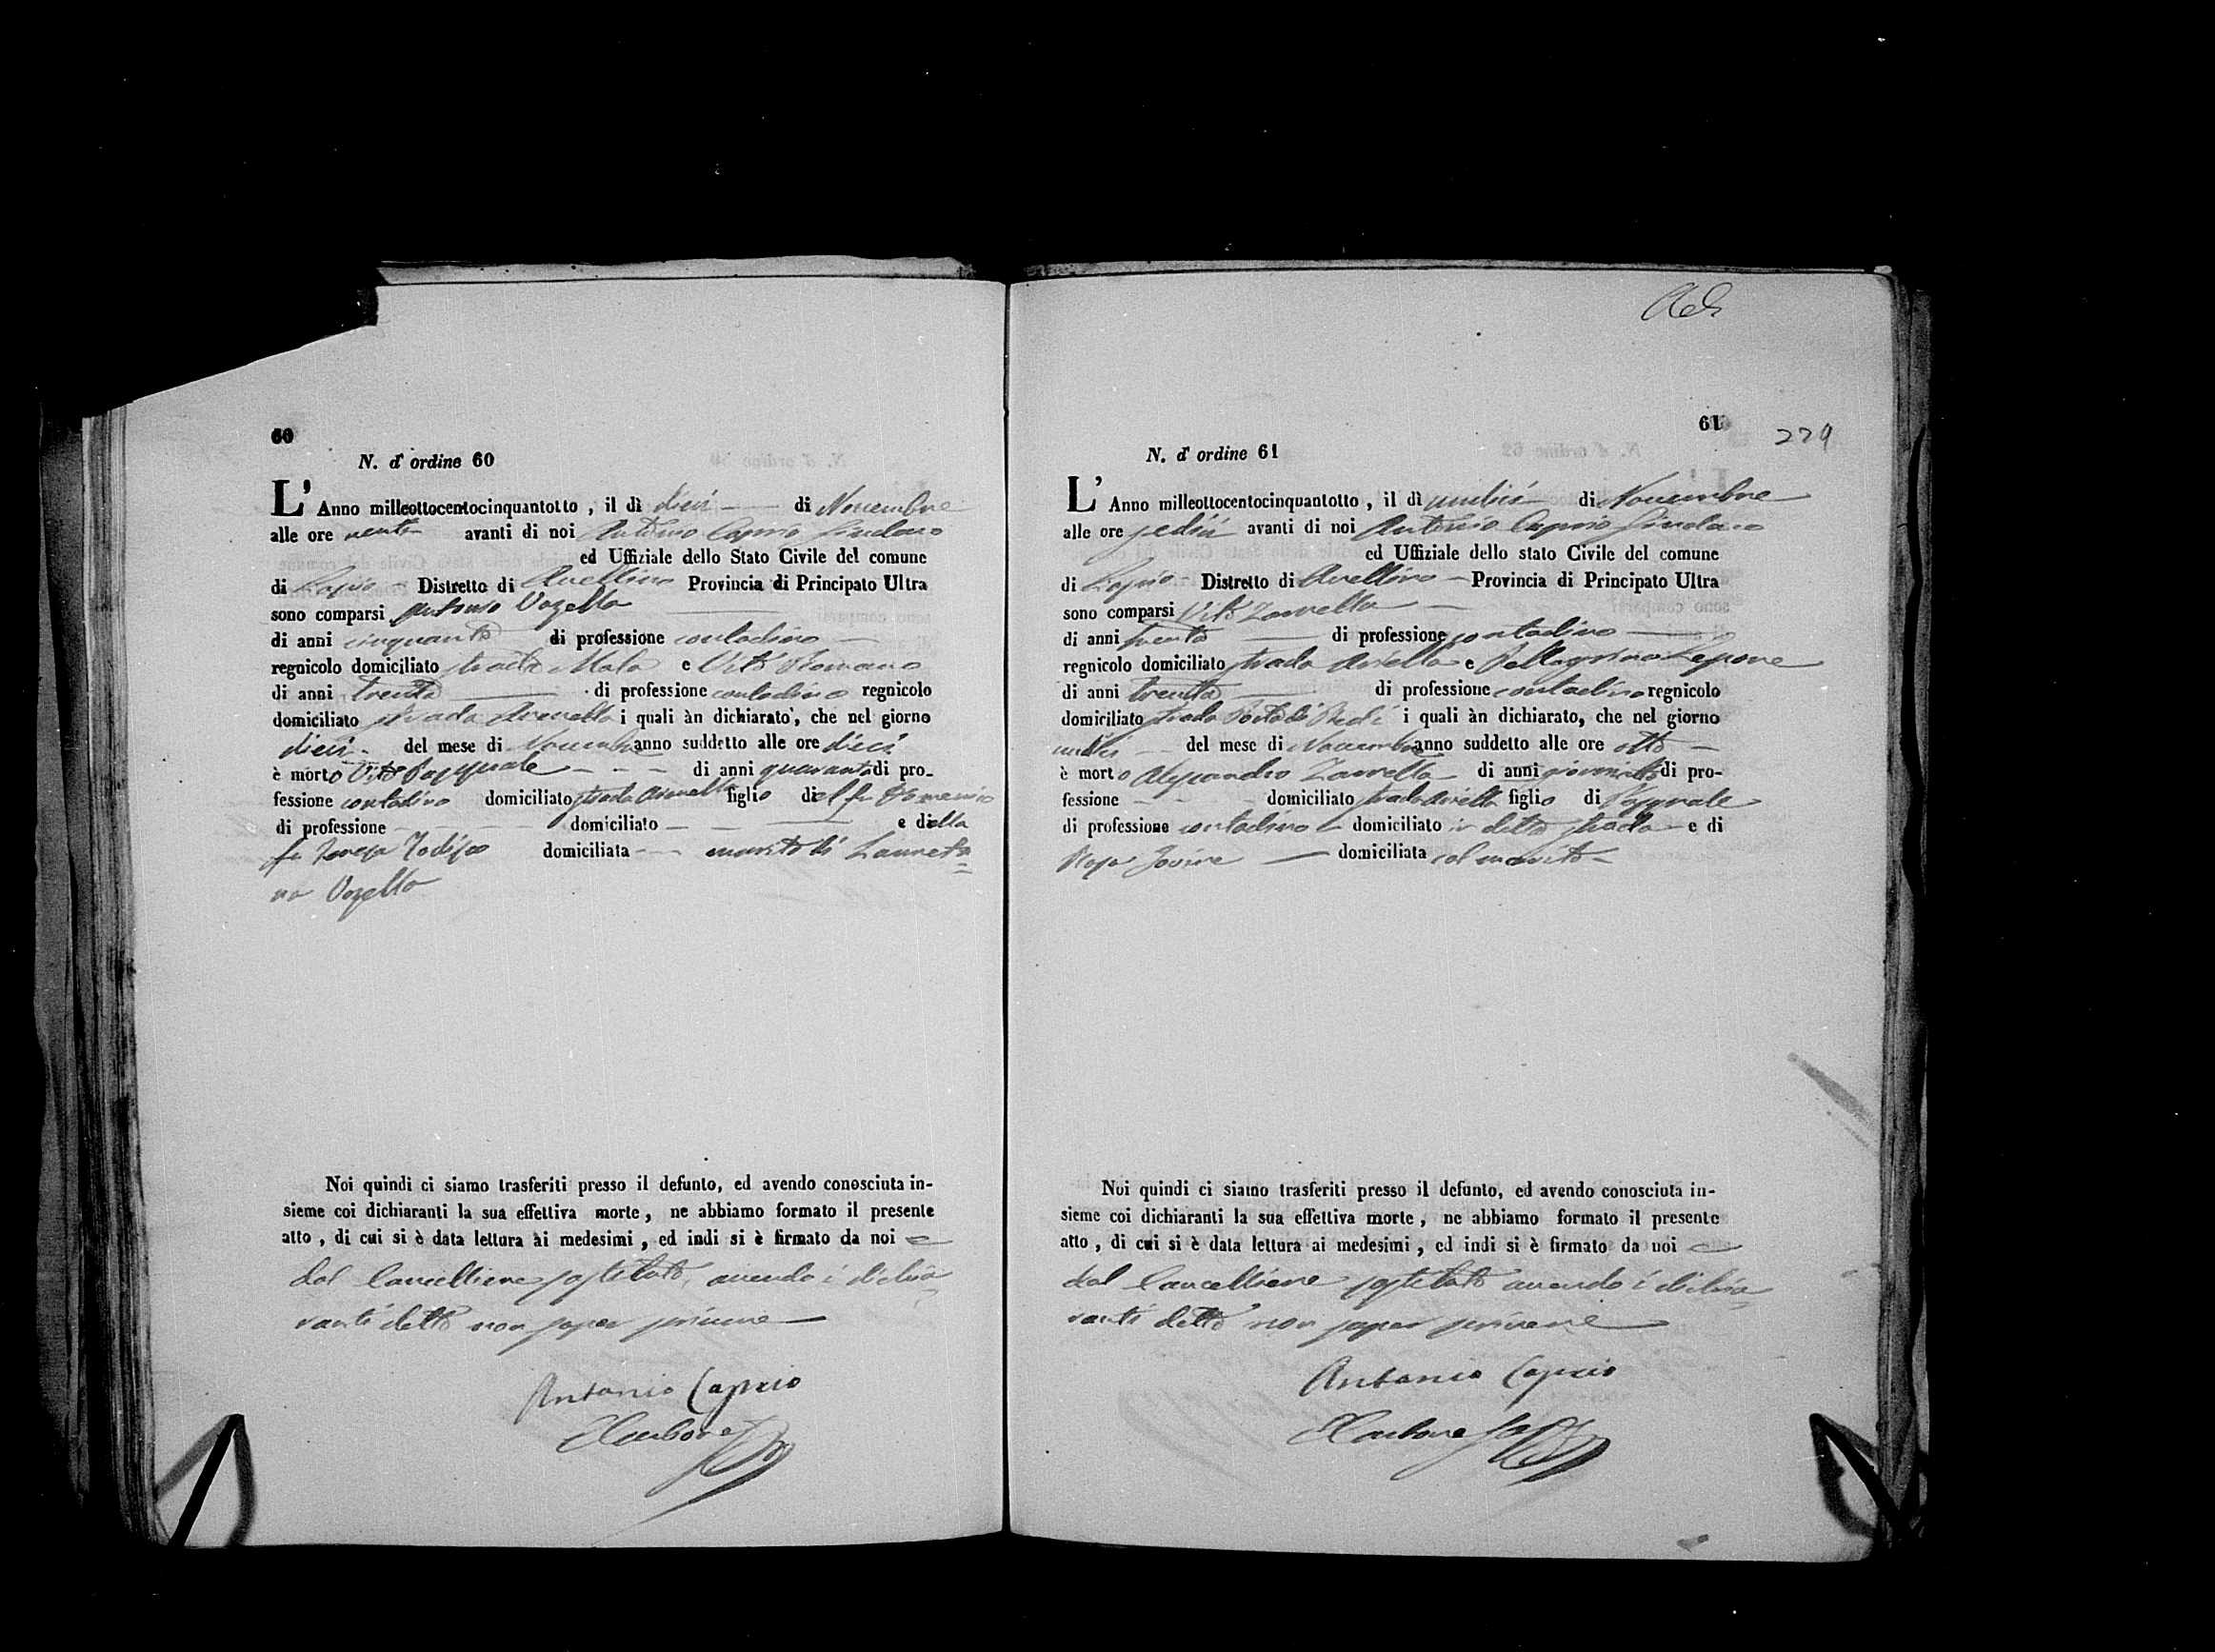 60
N. d' ordine 60
L' Anno milleottocentocinquantotto , il dì dieci di Novembre
alle ore venti avanti di noi Antonio Caprio Sindaco
ed Uffiziale dello Stato Civile del comune
di Lapio Distretto di Avellino Provincia di Principato Ultra
sono comparsi Antonio Vozella
di anni cinquanta di professione contadino
regnicolo domiciliato strada Mala e Vito Romano
di anni trenta di professione contadino regnicolo
domiciliato strada i quali àn dichiarato, che nel giorno
dieci del mese di Novembre anno suddetto alle ore dieci
è morto Vito Pasquale di anni quaranta di pro-
fessione contadino domiciliato strada figlio del fu Domenico
di professione domiciliato e della
fu Teresa domiciliata marito di Laureta=
na Vozella
Noi quindi ci siamo trasferiti presso il defunto, ed avendo conosciuta in-
sieme coi dichiaranti la sua effettiva morte , ne abbiamo formato il presente
atto , di cui si è data lettura ài medesimi , ed indi si è firmato da noi e
dal Cancelliere sostituto, avendo i dichia=
ranti detto non saper scrivere
Antonio Caprio
Carbone
61
229
N. d' ordine 61
L' Anno milleottocentocinquantotto , il dì undici di Novembre
alle ore sedici avanti di noi Antonio Caprio Sindaco
ed Uffiziale dello stato Civile del comune
di Lapio Distretto di Avellino Provincia di Principato Ultra
sono comparsi Vito Zarrella
di anni trenta di professione contadino
regnicolo domiciliato strada Ariella e Pellegrino Lepore
di anni trenta di professione contadino regnicolo
domiciliato strada Porta di i quali àn dichiarato, che nel giorno
undici del mese di Novembre anno suddetto alle ore otto
è morto Alessandro Zarrella di anni di pro-
fessione domiciliato strada Ariella figlio di Pasquale
di professione contadino domiciliato in detta strada e di
Rosa Iovine domiciliata col marito
Noi quindi ci siamo trasferiti presso il defunto, ed avendo conosciuta in-
sieme coi dichiaranti la sua effettiva morte , ne abbiamo formato il presente
atto , di cui si è data lettura ai medesimi , ed indi si è firmato da noi e
dal Cancelliere sostituto avendo i dichia=
ranti detto non saper scrivere
Antonio Caprio
Carbone